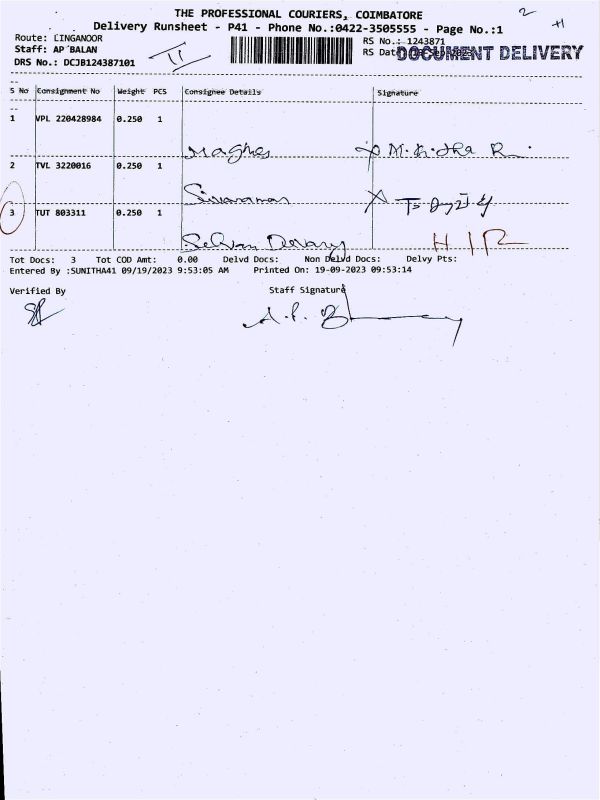 THE PROFESSIONAL COURIERS, COIMBATORE
Delivery Runsheet - P41 - Phone No.:0422-3505555 - Page No.:1
2 +1
Route: LINGANOOR
Staff: AP BALAN
DRS No.: DCJB124387101
11
RS No.: 1243871
RS Date
DOCUMENT DELIVERY
S No Consignment No Weight PCS Consignee Details Signature
1 VPL 220428984 0.250 1
Maghes
2 TVL 3220016 0.250 1
Sivaraman
3 TUT 803311 0.250 1
Selvan
Tot Docs: 3 Tot COD Amt: 0.00 Delvd Docs: Non Delvd Docs: Delvy Pts:
Entered By :SUNITHA41 09/19/2023 9:53:05 AM Printed On: 19-09-2023 09:53:14
Verified By Staff Signature